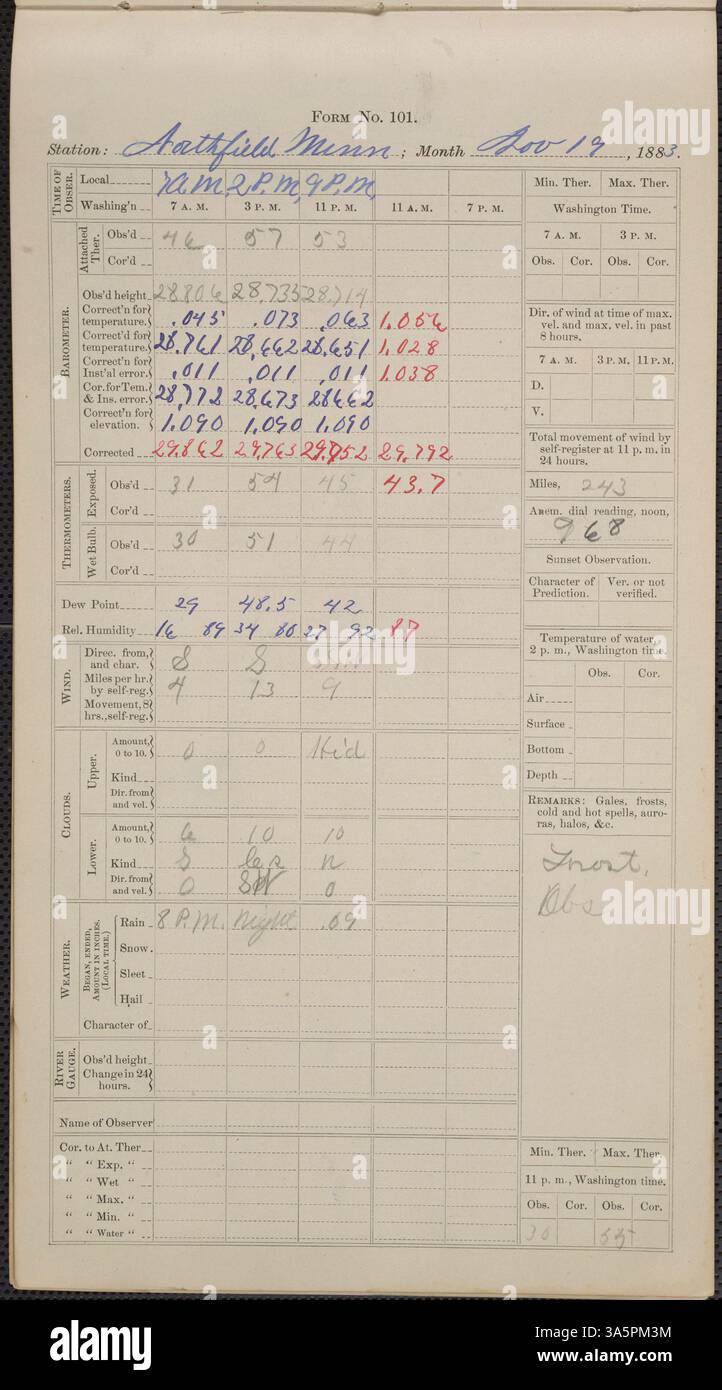 FORM No. 101.
Station: Northfield Minn; Month Nov 19, 1883.
TIME OF OBSER.
Local 7 A.M. 2 P.M. 9 P.M.
Washing'n 7 A. M. 3 P. M. 11 P. M. 11 A. M. 7 P. M.
BAROMETER.
Attached Ther.
Obs'd 46 57 53
Cor'd
Obs'd height 28.806 28.735 28.714
Correct'n for temperature. .045 .073 .063 1.056
Correct'd for temperature. 28.761 28.662 28.651 1.028
Correct'n for Inst'al error. .011 .011 .011 1.038
Cor. for Tem. & Ins. error. 28.772 28.673 28.662
Correct'n for elevation. 1.090 1.090 1.090
Corrected 29.862 29.763 29.752 29.792
THERMOMETERS.
Exposed.
Obs'd 31 54 45 43.7
Cor'd
Wet Bulb.
Obs'd 30 51 44
Cor'd
Dew Point 29 48.5 42
Rel. Humidity 16 89 34 80 27 92 87
WIND.
Direc. from, and char. S S
Miles per hr. by self-reg. 4 13 9
Movement, 8 hrs., self-reg.
CLOUDS.
Upper.
Amount, 0 to 10. 0 0 Hid
Kind
Dir. from and vel.
Lower.
Amount, 0 to 10. 6 10 10
Kind S n
Dir. from and vel. 0 SW 0
WEATHER.
BEGAN, ENDED, AMOUNT IN INCHES. (LOCAL TIME.)
Rain 8 P.M. Night .09
Snow.
Sleet
Hail
Character of
RIVER GAUGE.
Obs'd height
Change in 24 hours.
Name of Observer
Cor. to At. Ther
" " Exp. "
" " Wet "
" " Max. "
" " Min. "
" " Water "
Min. Ther. Max. Ther.
Washington Time.
7 A. M. 3 P. M.
Obs. Cor. Obs. Cor.
Dir. of wind at time of max. vel. and max. vel. in past 8 hours.
7 A. M. 3 P.M. 11 P.M.
D.
V.
Total movement of wind by self-register at 11 p. m. in 24 hours.
Miles, 243
Anem. dial reading, noon,
968
Sunset Observation.
Character of Prediction. Ver. or not verified.
Temperature of water, 2 p. m., Washington time.
Obs. Cor.
Air
Surface
Bottom
Depth
REMARKS: Gales, frosts, cold and hot spells, auroras, halos, &c.
Frost,
Obs
Min. Ther. Max. Ther.
11 p. m., Washington time.
Obs. Cor. Obs. Cor.
30 55
alamy
alamy
alamy
alamy
alamy
Image ID: 3A5PM3M
www.alamy.com